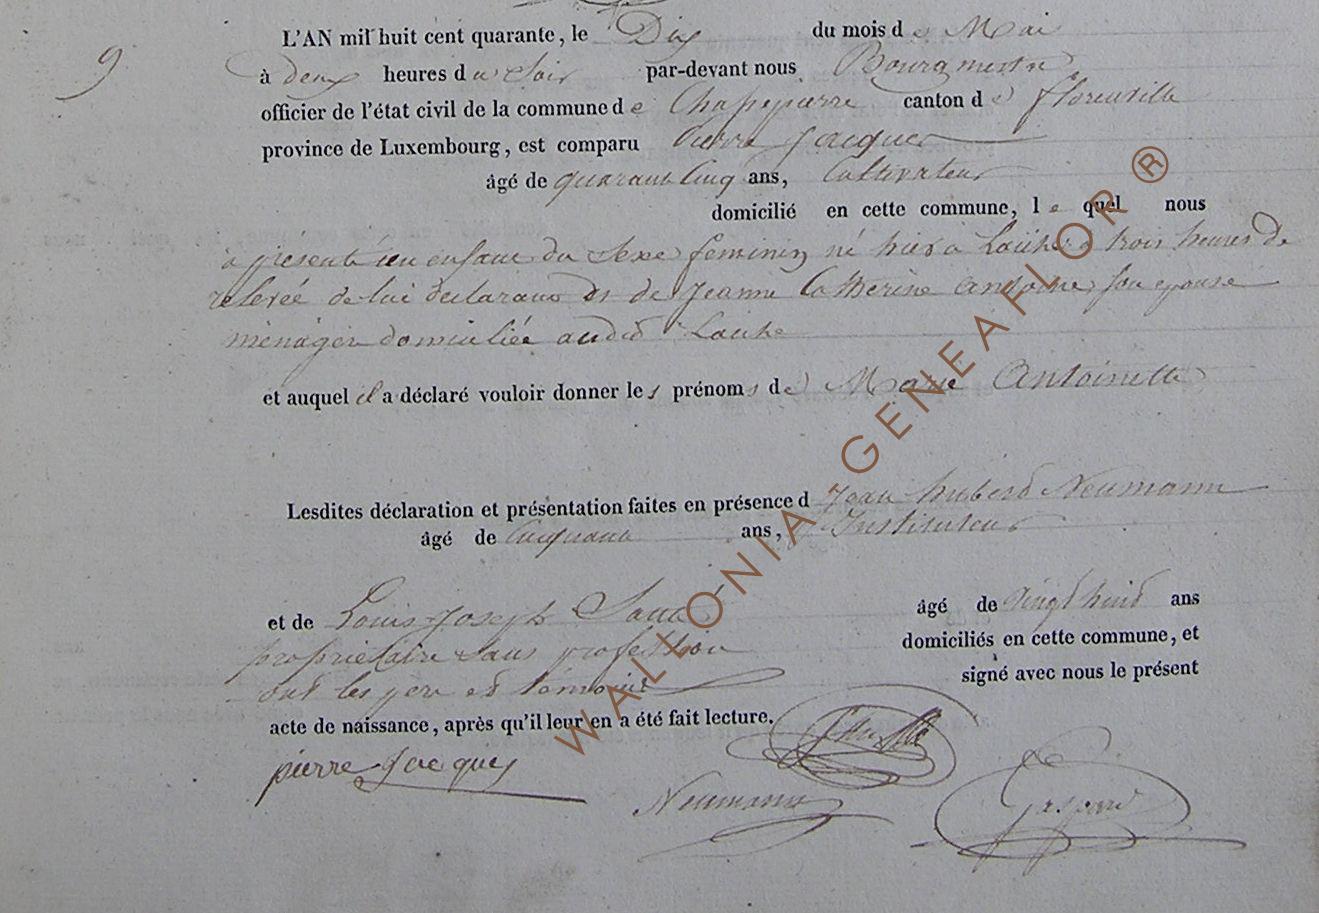 L'AN mil huit cent quarante, le Dix du mois de Mai
9
à deux heures du Soir par-devant nous Bourgmestre
officier de l'état civil de la commune de Chassepierre canton de Florenville
province de Luxembourg, est comparu Pierre Jacques
âgé de quarante Cinq ans, Cultivateur
domicilié en cette commune, lequel nous
a présenté un enfant du Sexe feminin né hier a Laiche a trois heures de
relevée de lui declarant et de jeanne Catherine Antoine, son epouse
ménagère domiciliée audit Laiche
et auquel il a déclaré vouloir donner les prénoms de Marie Antoinette
Lesdites déclaration et présentation faites en présence d Jean hubert Neumann
âgé de Cinquante ans, Instituteur
et de Louis Joseph âgé de vingt huit ans
propriétaire Sans profession domiciliés en cette commune, et
ont les pere et témoins signé avec nous le présent
acte de naissance, après qu'il leur en a été fait lecture.
pierre Jacques
Neumann
Gaspard
WALLONIA-GENEAFLOR ®